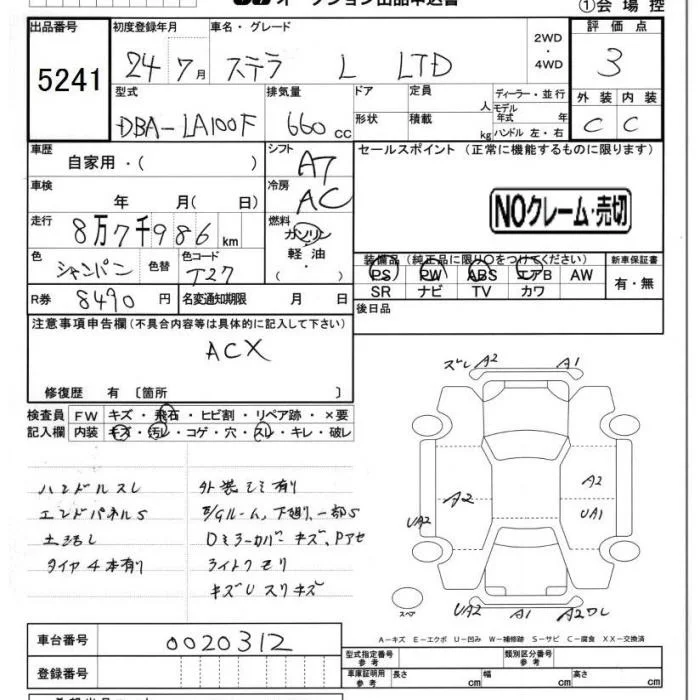 オークション出品申込書
①会場控
出品番号 5241
初度登録年月 24 7月
車名・グレード ステラ L LTD
2WD・4WD
評価点 3
型式 DBA-LA100F
排気量 660cc
ドア 定員 人
形状 積載 kg
ディーラー・並行
モデル年式 年
ハンドル 左・右
外装 C 内装 C
車歴 自家用・( )
シフト A7
セールスポイント (正常に機能するものに限ります)
車検 年 月( 日)
冷房 AC
NOクレーム・売切
走行 8万7千986km
燃料 ガソリン
軽油
( )
色 シャンパン 色替 色コード T27
装備品(純正品に限り○をつけてください) 新車保証書
PS PW ABS エアB AW 有・無
SR ナビ TV カワ
R券 8490円 名変通知期限 月 日
後日品
注意事項申告欄(不具合内容等は具体的に記入して下さい)
ACX
修復歴 有 〔箇所 〕
検査員 FW キズ・飛石・ヒビ割・リペア跡・×要
記入欄 内装 キズ・汚レ・コゲ・穴・スレ・キレ・破レ
ズレ A2 A1
ハンドルスレ 外装ミミ有り
エンドパネルS E/Gルーム、下廻り一部S
土活し Dミラーカバーキズ、Pアセ
タイヤ4本有り ライトクモリ
キズUスリキズ
A2 A2
UA2 UA1
スペア UA2 A1 A2ワレ
A-キズ E-エクボ U-凹み W-補修跡 S-サビ C-腐食 XX-交換済
車台番号 0020312
登録番号
型式指定番号 参考 類別区分番号 参考
車庫証明用 参考 長さ cm 幅 cm 高さ cm